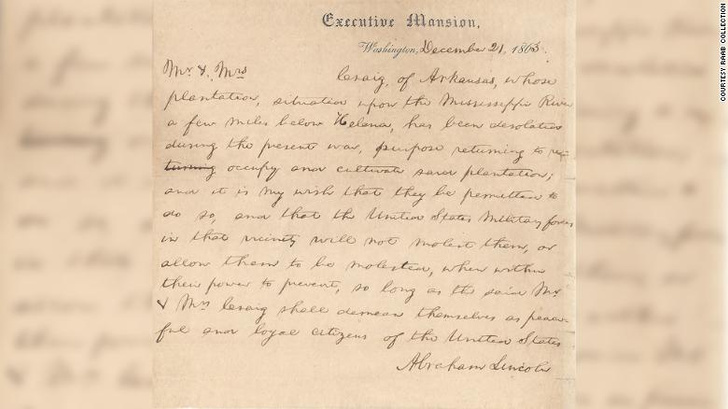 Executive Mansion,
Washington, December 21, 1863.
Mr & Mrs Craig, of Arkansas, whose
plantation, situated upon the Mississippi River
a few miles below Helena, has been desolated
during the present war, purpose returning to re-
turning occupy and cultivate said plantation;
and it is my wish that they be permitted to
do so, and that the United States Military forces
in that vicinity will not molest them, or
allow them to be molested, when within
their power to prevent, so long as the said Mr
& Mrs Craig shall demean themselves as peace-
ful and loyal citizens of the United States
Abraham Lincoln
COURTESY RAAB COLLECTION